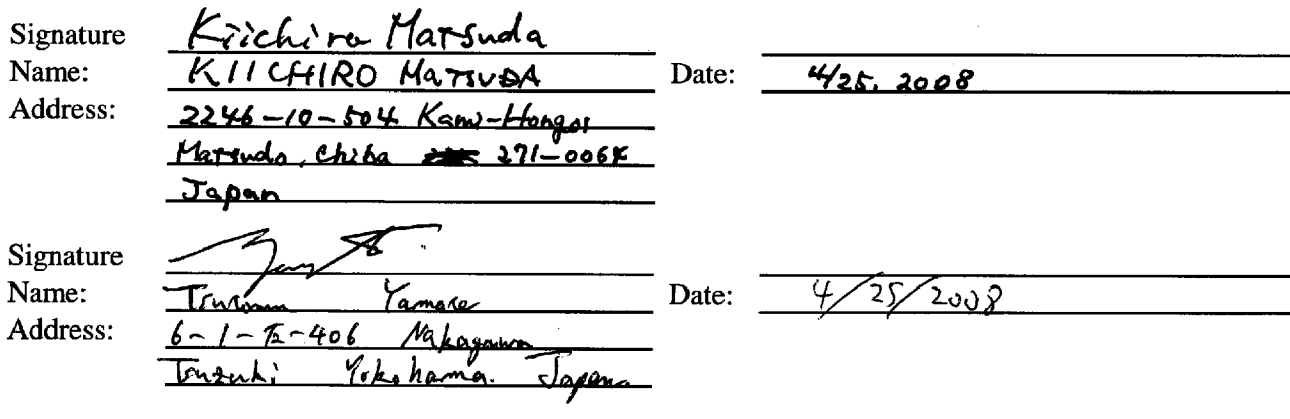 Signature Kiichiro Matsuda
Name: KIICHIRO MATSUDA Date: 4/25. 2008
Address: 2246-10-504 Kami-Hongo,
Matsudo, Chiba 271-0064
Japan
Signature
Name: Tsutomu Yamase Date: 4/25/2008
Address: 6-1-12-406 Nakagawa
Tsuzuki Yokohama. Japan